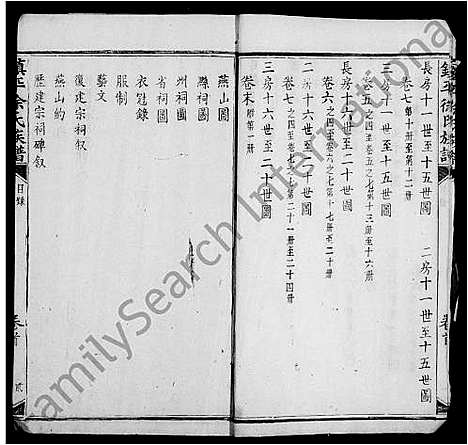 長房十一世至十五世圖　二房十一世至十五世圖
卷七第十册至第十二册
三房十一世至十五世圖
卷五之四至卷五之七第十三册至十六册
長房十六世至二十世圖
卷六之四至卷六之七第十七册至二十册
二房十六世至二十世圖
卷七之四至卷七之七第二十一册至二十四册
三房十六世至二十世圖
卷末附第一册
卷首
燕山圖
縣祠圖
州祠圖
省祠圖
衣冠錄
服制
藝文
復建宗祠叙
燕山約
歷建宗祠碑叙
鎮平徐氏族譜
目錄
卷首
貳
FamilySearch International